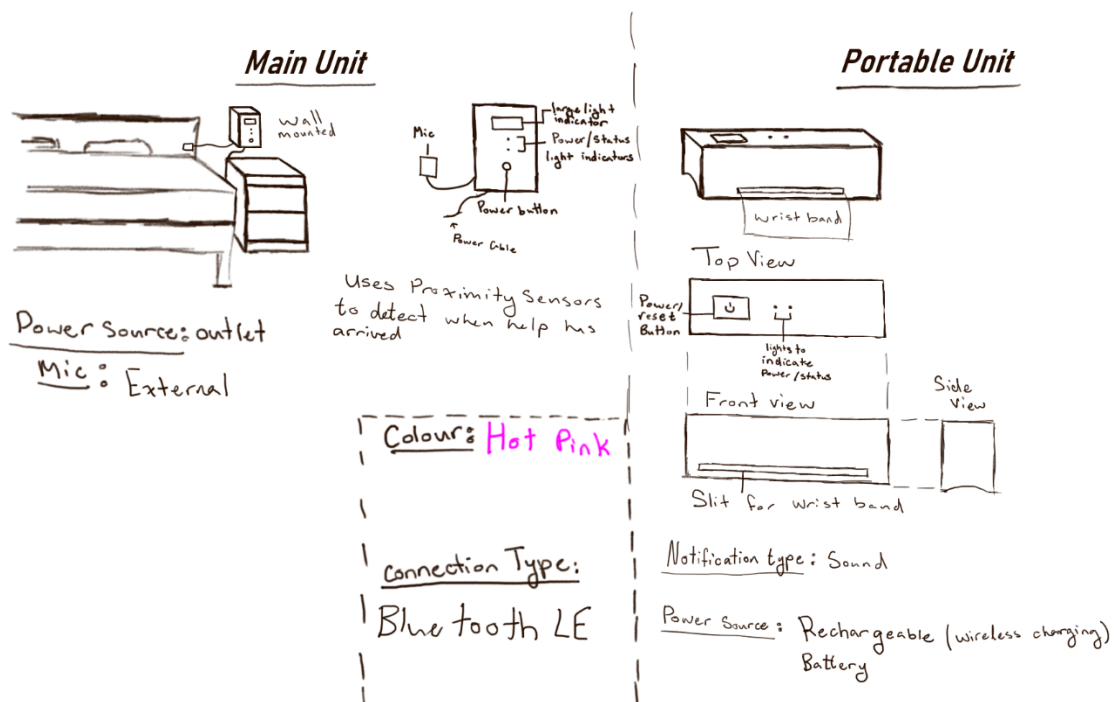 Main Unit
wall
mounted
Mic
large light
indicator
Power/status
light indicators
Power button
Power Cable
Uses Proximity Sensors
to detect when help has
arrived
Power Source: outlet
Mic: External
Colour: Hot Pink
Connection Type:
Bluetooth LE
Portable Unit
wrist band
Top View
Power/
reset
Button
lights to
indicate
Power/status
Front view
Side
View
Slit for wrist band
Notification type: Sound
Power Source: Rechargeable (wireless charging)
Battery